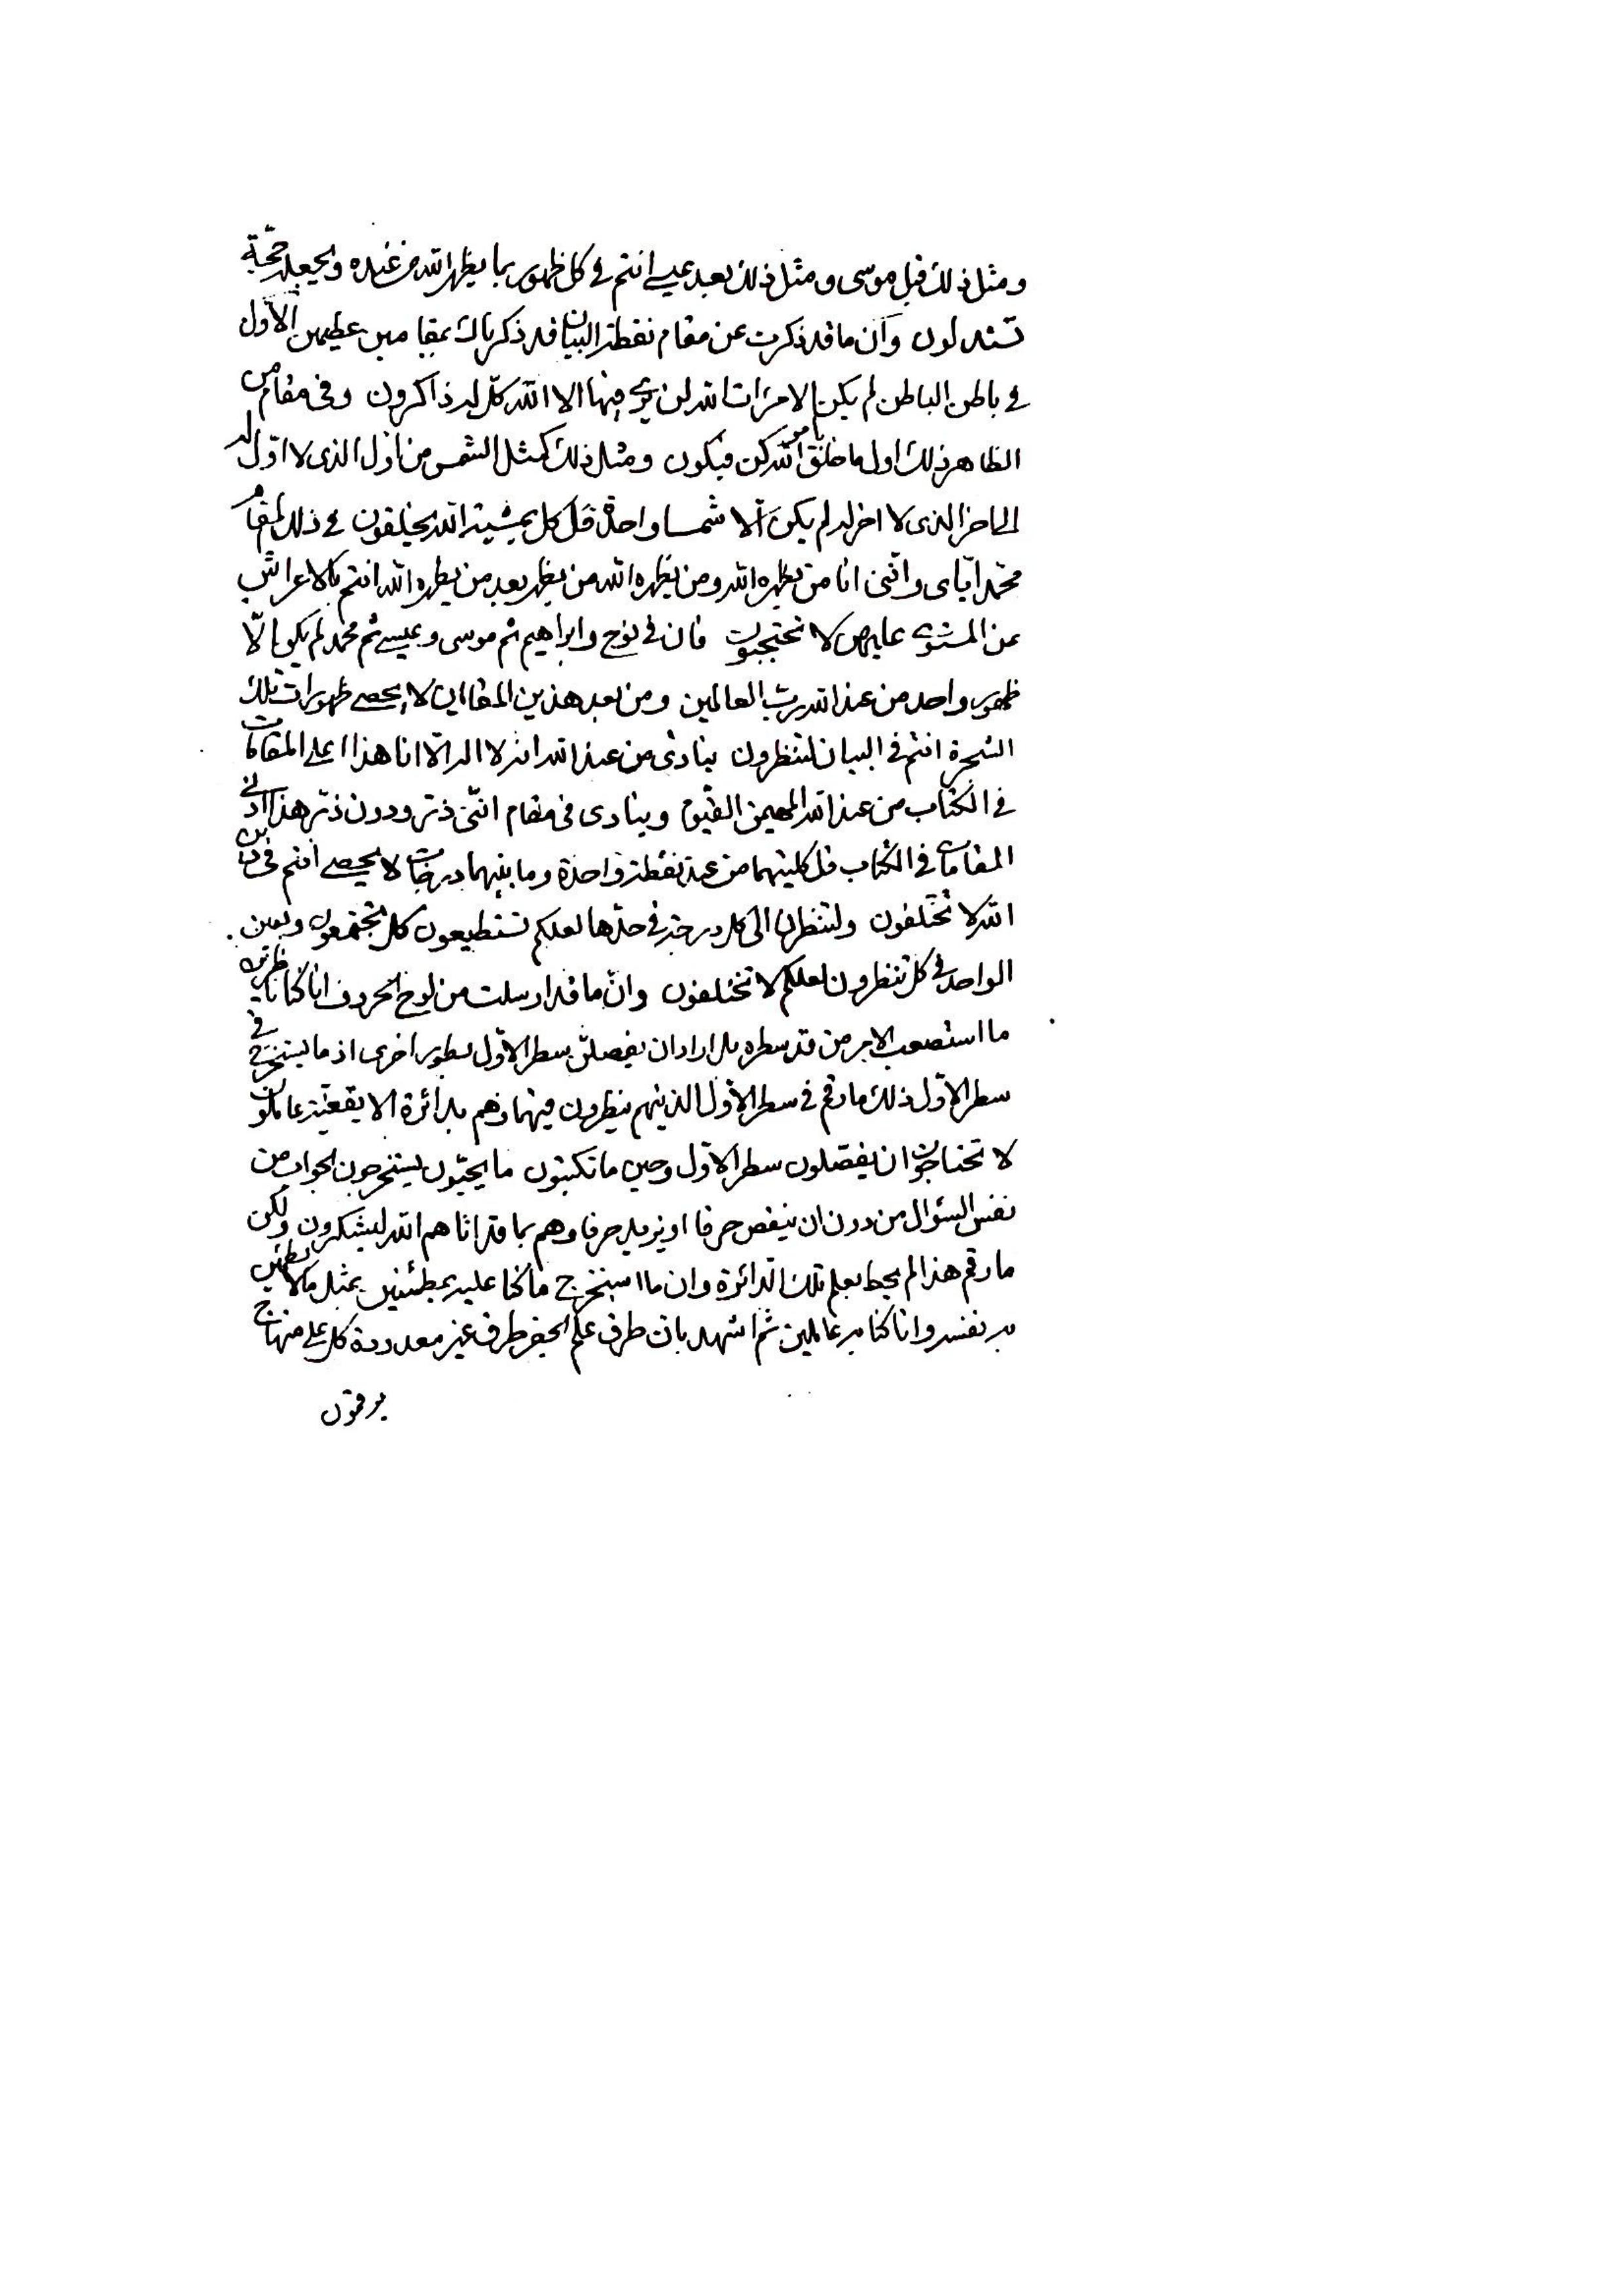 ومثل ذلك قبل موسى ومثل ذلك بعد عيسى انتم في كل ظهور بما يظهر الله من عنده ويجعله حجة
تستدلون وان ما قد ذكرت عن مقام نقطة البيان قد ذكرناك بمقامين عظيمين الاول
في باطن الباطن لم يكن الا مرات الله لن يرى فيها الا الله كل له ذاكرون وفى مقام من
الظاهر ذلك اول ما خلق بامر الله كن فيكون ومثل ذلك كمثل الشمس من اول الذى لا اول له
الى اخر الذى لا اخر له لم يكن الا شمسا واحدة قل كل بمشية الله يخلقون في ذلك المقام
محمد اياى وانني انا من يظهره الله ومن يظهره الله من يظهر بعد من يظهره الله انتم بالاعراش
عن المستوى عليهن لا تحتجبون فان في نوح وابراهيم ثم موسى وعيسى ثم محمد لم يكن الا
ظهور واحد من عند الله رب العالمين ومن بعد هذين المقامين لا يحصى ظهورات تلك
الشجرة انتم في البيان لتنظرون ينادى من عند الله انه لا اله الا انا هذا اعلى المقامات
في الكتاب من عند الله المهيمن القيوم وينادى فى مقام انني ذر ودون ذر هذا ادنى
المقامات في الكتاب قل كليتهما من عند نقطة واحدة وما بينهما درجات لا يحصى انتم في دين
الله لا تختلفون ولتنظرن الى كل درجة في حدها لعلكم تستطيعون كل تجتمعون وبعين
الواحد في كل تنظرون لعلكم لا تختلفون وان ما قد ارسلت من لوح الحروف انا كنا ناظرين
ما استصعب الامر من قد سطره بل اراد ان يفصلن سطر الاول سطور اخرى اذ ما يستخرج في
سطر الاول ذلك ما رقم في سطر الاول الذينهم ينظرون فيها وهم بدائرة الايقغية عاملون
لا تحتاجون ان يفصلون سطر الاول وحين ما تكتبون ما يحبون يستخرجون الجواب من
نفس السئوال من دون ان ينقص حرفا او يزيد حرفا وهم بما قد اتاهم الله ليشكرون ولكن
ما رقم هذا لم يحط بعلم تلك الدائرة وان ما استخرج ما كنا عليه بمطمئنين بمثل ما لا يطمئن
به نفسه وانا كنا به عالمين ثم اشهد بان طرف علم الجفر طرف غير معدودة كل على منهاج
يرقمون